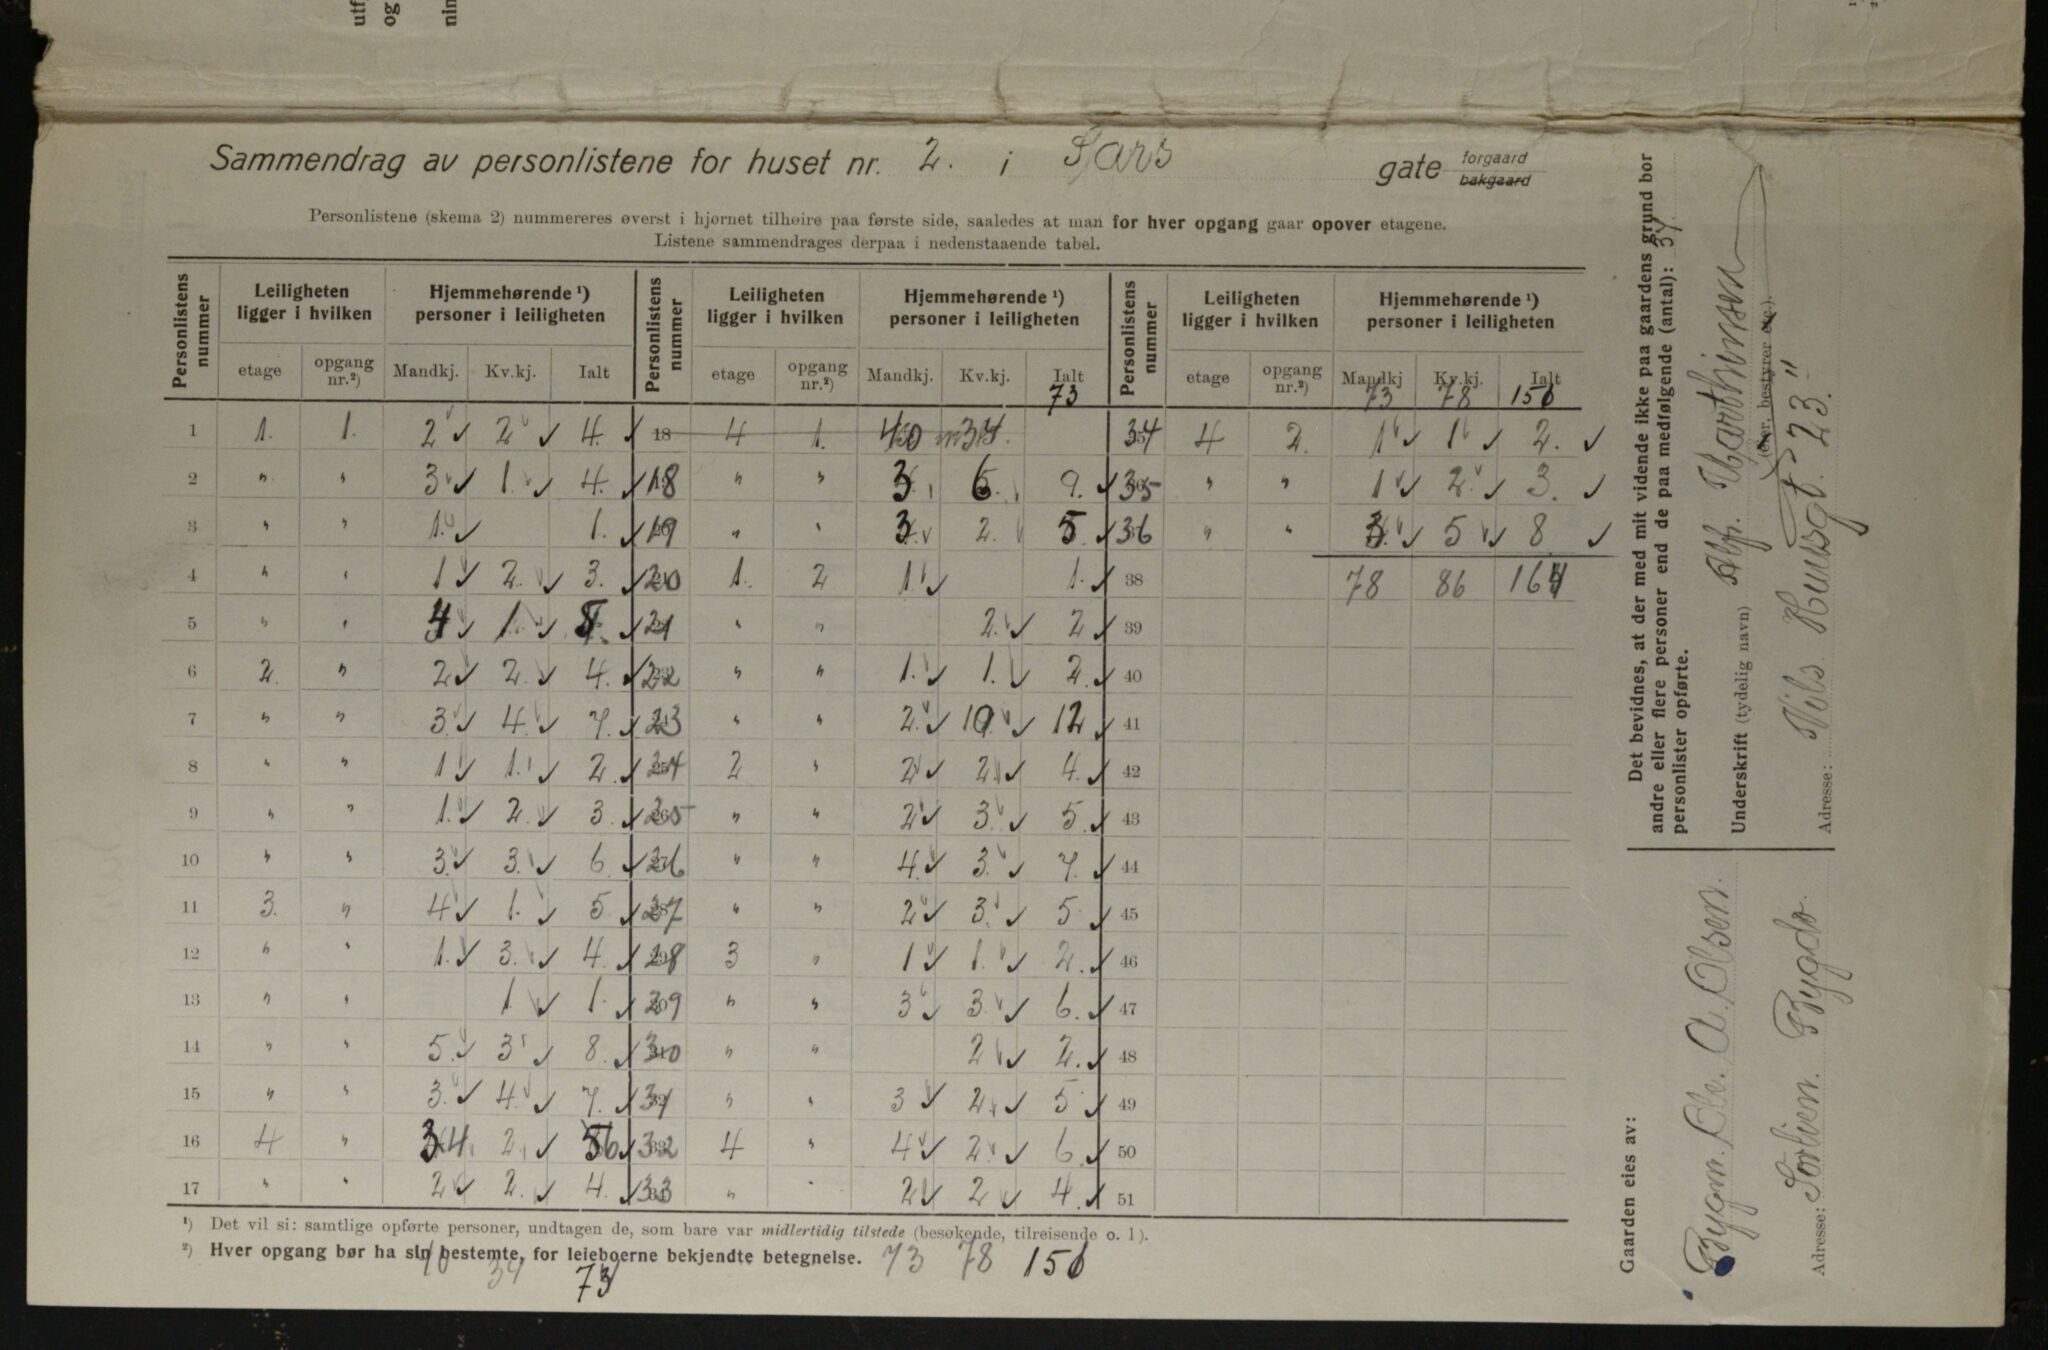 Sammendrag av personlistene for huset nr. 2. i Sars gate forgaard bakgaard
Personlistene (skema 2) nummereres øverst i hjørnet tilhøire paa første side, saaledes at man for hver opgang gaar opover etagene.
Listene sammendrages derpaa i nedenstaaende tabel.
Personlistens nummer | Leiligheten ligger i hvilken | Hjemmehørende ¹) personer i leiligheten | Personlistens nummer | Leiligheten ligger i hvilken | Hjemmehørende ¹) personer i leiligheten | Personlistens nummer | Leiligheten ligger i hvilken | Hjemmehørende ¹) personer i leiligheten
etage | opgang nr.²) | Mandkj. | Kv.kj. | Ialt | etage | opgang nr.²) | Mandkj. | Kv.kj. | Ialt | etage | opgang nr.²) | Mandkj | Kv.kj. | Ialt
73 | 73 | 78 | 151
1 | 1. | 1. | 2 | 2 | 4. | 18 | 4 | 1. | 34 | 4 | 2. | 1 | 1 | 2.
2 | " | " | 3 | 1. | 4. | 18 | " | " | 3 | 6 | 9. | 35 | " | " | 1 | 2 | 3.
3 | " | " | 1. | | 1. | 19 | " | " | 3 | 2. | 5 | 36 | " | " | 3 | 5 | 8
4 | " | " | 1 | 2. | 3. | 20 | 1. | 2 | 1. | | 1. | 38 | | | 78 | 86 | 164
5 | " | " | 4 | 1. | 5 | 21 | " | " | | 2. | 2 | 39
6 | 2. | " | 2 | 2. | 4. | 22 | " | " | 1. | 1. | 2. | 40
7 | " | " | 3 | 4. | 7. | 23 | " | " | 2. | 10 | 12 | 41
8 | " | " | 1 | 1. | 2. | 24 | 2 | " | 2 | 2 | 4. | 42
9 | " | " | 1. | 2. | 3. | 25 | " | " | 2 | 3. | 5. | 43
10 | " | " | 3. | 3. | 6. | 26 | " | " | 4. | 3. | 7. | 44
11 | 3. | " | 4 | 1. | 5 | 27 | " | " | 2 | 3. | 5. | 45
12 | " | " | 1. | 3. | 4. | 28 | 3 | " | 1 | 1. | 2. | 46
13 | " | " | | 1 | 1. | 29 | " | " | 3 | 3. | 6. | 47
14 | " | " | 5. | 3 | 8. | 30 | " | " | | 2 | 2. | 48
15 | " | " | 3. | 4. | 7. | 31 | " | " | 3 | 2 | 5. | 49
16 | 4 | " | 34 | 2. | 56 | 32 | 4 | " | 4 | 2. | 6. | 50
17 | " | " | 2 | 2. | 4. | 33 | " | " | 2 | 2 | 4. | 51
¹) Det vil si: samtlige opførte personer, undtagen de, som bare var midlertidig tilstede (besøkende, tilreisende o. l).
²) Hver opgang bør ha sin bestemte, for leieboerne bekjendte betegnelse.
40 34 73 73 78 151
Det bevidnes, at der med mit vidende ikke paa gaardens grund bor
andre eller flere personer end de paa medfølgende (antal): 37
personlister opførte.
Underskrift (tydelig navn) Alf. Marthinsen
(eier, bestyrer etc.).
Adresse: Nils Huusgt. 23."
Gaarden eies av:
Bygm. Ole. A. Olsen.
Adresse: Bygdø.